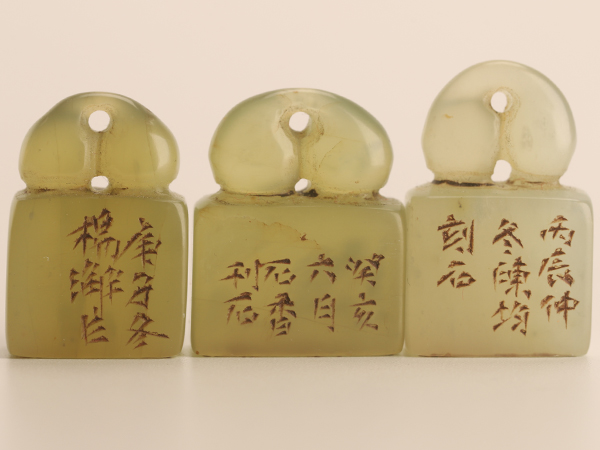 庚子冬
棉
癸亥
六月
石香
刊石
丙辰仲
冬陳均
刻石